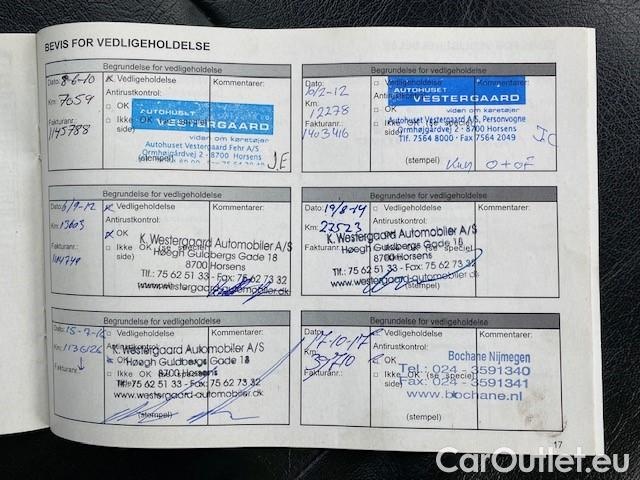 BEVIS FOR VEDLIGEHOLDELSE
Begrundelse for vedligeholdelse
Dato: 8-6-10
Vedligeholdelse
Kommentarer:
Km: 7059
Antirustkontrol:
OK
Fakturanr.:
Ikke OK (se speciel side)
1145788
AUTOHUSET
VESTERGAARD
viden om køretøjer
Autohuset Vestergaard Fehr A/S
Ormhøjgårdvej 2 - 8700 Horsens
(stempel)
J.E
Begrundelse for vedligeholdelse
Dato:
Vedligeholdelse
Kommentarer:
10/2-12
Km:
12278
Fakturanr.:
1403416
AUTOHUSET
VESTERGAARD
viden om køretøjer
Autohuset Vestergaard A/S, Personvogne
Ormhøjgårdvej 2 - 8700 Horsens
Tlf. 7564 8000 - Fax 7564 2049
(stempel)
Kun O+OF
Begrundelse for vedligeholdelse
Dato: 6/9-12
Vedligeholdelse
Kommentarer:
Km: 13605
Antirustkontrol:
OK
Fakturanr.:
Ikke OK (se speciel side)
K. Westergaard Automobiler A/S
Høegh Guldbergs Gade 18
8700 Horsens
Tlf.: 75 62 51 33 - Fax: 75 62 73 32
www.westergaard-automobiler.dk
(stempel)
Begrundelse for vedligeholdelse
Dato: 19/8-14
Vedligeholdelse
Kommentarer:
Km: 22523
Antirustkontrol:
OK
Fakturanr.:
Ikke OK (se speciel side)
K. Westergaard Automobiler A/S
Høegh Guldbergs Gade 18
8700 Horsens
Tlf.: 75 62 51 33 - Fax: 75 62 73 32
www.westergaard-automobiler.dk
(stempel)
Begrundelse for vedligeholdelse
Dato:
Vedligeholdelse
Kommentarer:
Km:
Antirustkontrol:
OK
Fakturanr.:
K. Westergaard Automobiler A/S
Høegh Guldbergs Gade 18
8700 Horsens
Tlf.: 75 62 51 33 - Fax: 75 62 73 32
www.westergaard-automobiler.dk
(stempel)
Begrundelse for vedligeholdelse
Dato:
17-10-17
Vedligeholdelse
Kommentarer:
Km:
Antirustkontrol:
OK
Fakturanr.:
Ikke OK (se speciel side)
Bochane Nijmegen
Tel.: 024 - 3591340
Fax: 024 - 3591341
www.bochane.nl
(stempel)
17
CarOutlet.eu